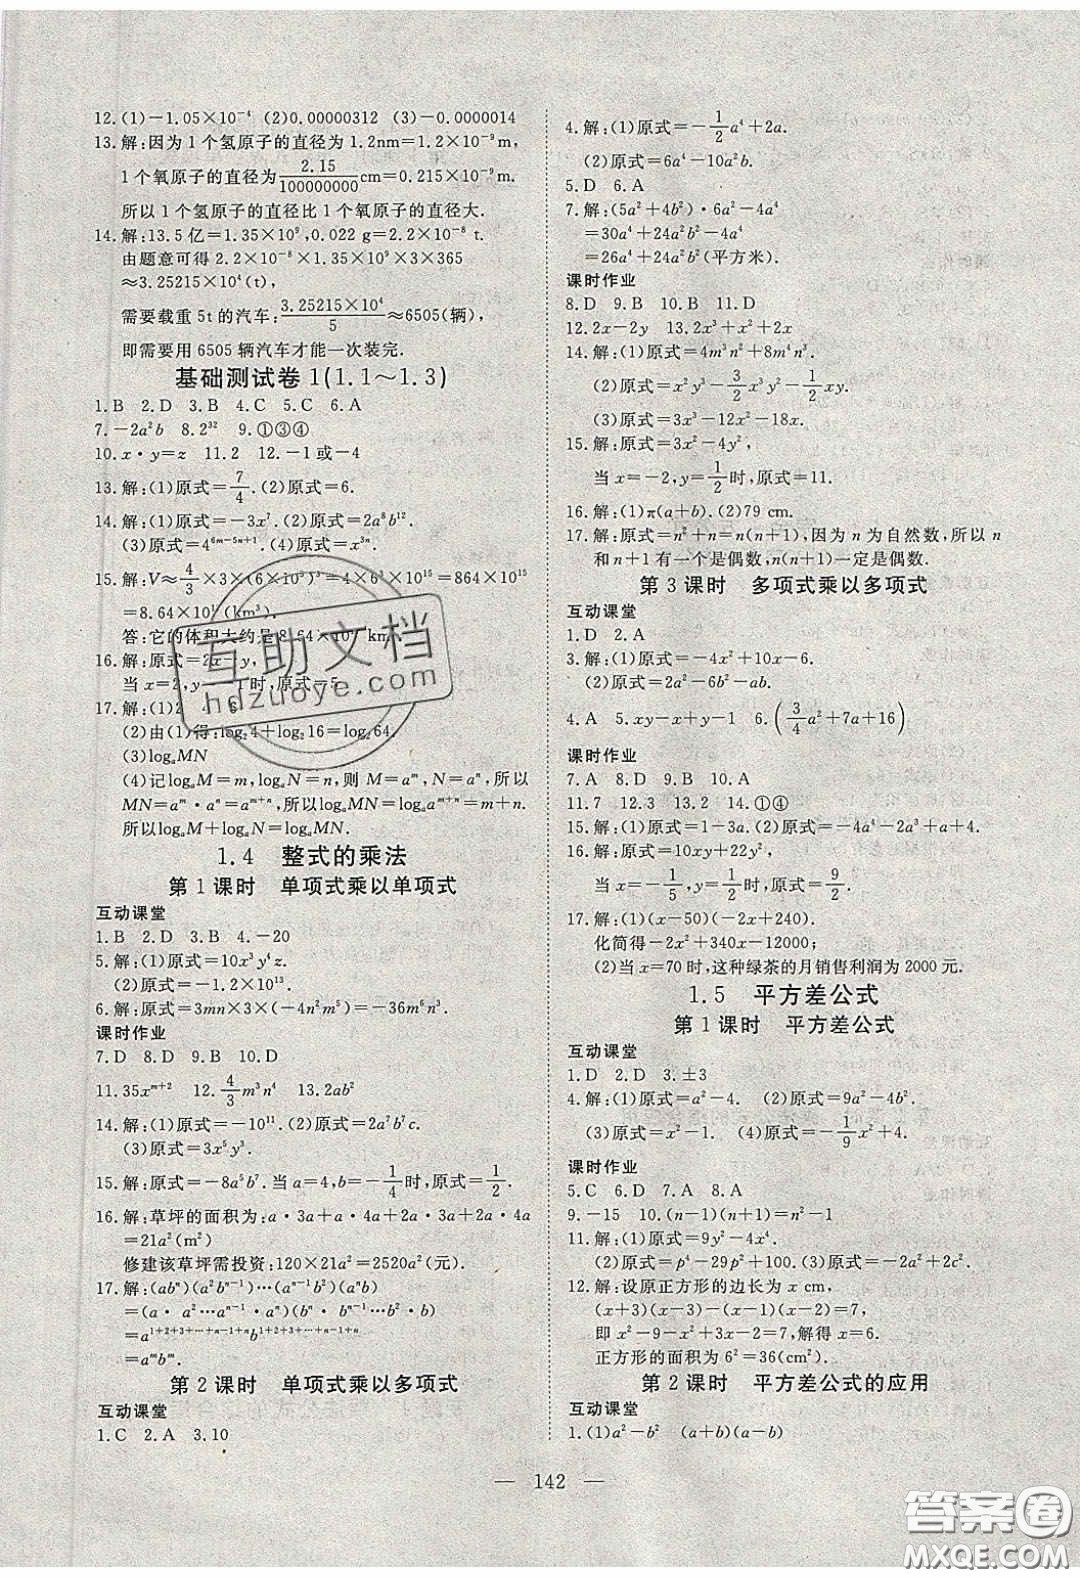 12.(1)-1.05×10⁻⁴ (2)0.00000312 (3)-0.0000014
13.解:因为1个氢原子的直径为1.2nm=1.2×10⁻⁹m,
1个氧原子的直径为2.15/100000000cm=0.215×10⁻⁹m.
所以1个氢原子的直径比1个氧原子的直径大.
14.解:13.5亿=1.35×10⁹,0.022 g=2.2×10⁻⁸ t.
由题意可得2.2×10⁻⁸×1.35×10⁹×3×365
≈3.25215×10⁴(t),
需要载重5t的汽车:3.25215×10⁴/5≈6505(辆),
即需要用6505辆汽车才能一次装完.
基础测试卷1(1.1～1.3)
1.B 2.D 3.B 4.C 5.C 6.A
7.-2a²b 8.2³² 9.①③④
10.x·y=z 11.2 12.-1或-4
13.解:(1)原式=7/4.(2)原式=6.
14.解:(1)原式=-3x⁷.(2)原式=2a⁸b¹².
(3)原式=4⁶ᵐ⁻⁵ⁿ⁺¹.(4)原式=x³ⁿ.
15.解:V≈4/3×3×(6×10⁵)³=4×6³×10¹⁵=864×10¹⁵
=8.64×10 (km³).
答:它的体积大约是8.64×10 km
16.解:原式=2x-y,
当x=2,y= 1时,原式=5
17.解:(1)2 4 6
(2)由(1)得:log₂4+log₂16=log₂64.
(3)logₐMN
(4)记logₐM=m,logₐN=n,则M=aᵐ,N=aⁿ,所以
MN=aᵐ·aⁿ=aᵐ⁺ⁿ,所以logₐMN=logₐaᵐ⁺ⁿ=m+n.
所以logₐM+logₐN=logₐMN.
1.4 整式的乘法
第1课时 单项式乘以单项式
互动课堂
1.B 2.D 3.B 4.-20
5.解:(1)原式=10x³y⁴z.
(2)原式=-1.2×10¹³.
6.解:原式=3mn×3×(-4n²m⁵)=-36m⁶n³.
课时作业
7.D 8.D 9.B 10.D
11.35xᵐ⁺² 12.4/3m³n⁴ 13.2ab²
14.解:(1)原式=-10¹¹.(2)原式=2a⁷b⁷c.
(3)原式=3x⁵y³.
15.解:原式=-8a⁵b⁵.当a=4,b=-1/4时,原式=1/2.
16.解:草坪的面积为:a·3a+a·4a+2a·3a+2a·4a
=21a²(m²)
修建该草坪需投资:120×21a²=2520a²(元).
17.解:(abⁿ)(a²bⁿ⁻¹)…(aⁿ⁻¹b²)(aⁿb)
=(a·a²…aⁿ⁻¹·aⁿ)(bⁿ·bⁿ⁻¹…b²·b)
=a¹⁺²⁺³⁺…⁺ⁿ⁻¹⁺ⁿb¹⁺²⁺³⁺…⁺ⁿ⁻¹⁺ⁿ
=aᵐbᵐ.
第2课时 单项式乘以多项式
互动课堂
1.C 2.A 3.10
4.解:(1)原式=-1/2a⁴+2a.
(2)原式=6a⁴-10a²b.
5.D 6.A
7.解:(5a²+4b²)·6a²-4a⁴
=30a⁴+24a²b²-4a⁴
=26a⁴+24a²b²(平方米).
课时作业
8.D 9.B 10.B 11.D
12.2x-2y 13.2x³+x²+2x
14.解:(1)原式=4m³n²+8m⁴n³.
(2)原式=x²y³-3/2x³y²-1/2x³y.
(3)原式=3x³-12x²-18x.
15.解:原式=3x²-4y²,
当x=-2,y=1/2时,原式=11.
16.解:(1)π(a+b).(2)79 cm.
17.解:原式=n²+n=n(n+1),因为n为自然数,所以n
和n+1有一个是偶数,n(n+1)一定是偶数.
第3课时 多项式乘以多项式
互动课堂
1.D 2.A
3.解:(1)原式=-4x²+10x-6.
(2)原式=2a²-6b²-ab.
4.A 5.xy-x+y-1 6.(3/4a²+7a+16)
课时作业
7.A 8.D 9.B 10.A
11.7 12.3 13.2 14.①④
15.解:(1)原式=1-3a.(2)原式=-4a⁴-2a³+a²+a.
16.解:原式=10xy+22y²,
当x=-1/5,y=1/2时,原式=9/2.
17.解:(1)(x-50)(-2x+240).
化简得-2x²+340x-12000;
(2)当x=70时,这种绿茶的月销售利润为2000元.
1.5 平方差公式
第1课时 平方差公式
互动课堂
1.D 2.D 3.±3
4.解:(1)原式=a²-4.(2)原式=9a²-4b².
(3)原式=x²-1. (4)原式=-1/9x²+4.
课时作业
5.C 6.D 7.A 8.A
9.-15 10.(n-1)(n+1)=n²-1
11.解:(1)原式=9y²-4x⁴.
(2)原式=p⁴-q⁴.(3)原式=-2a²+2c².
12.解:设原正方形的边长为x cm,
(x+3)(x-3)-(x-1)(x-2)=7,
即x²-9-x²+3x-2=7,解得x=6.
正方形的面积为6²=36(cm²).
第2课时 平方差公式的应用
互动课堂
1.(1)a²-b² (a+b)(a-b)
— 142 —
互助文档
hdzuoye.com
答案圈
MXQE.COM